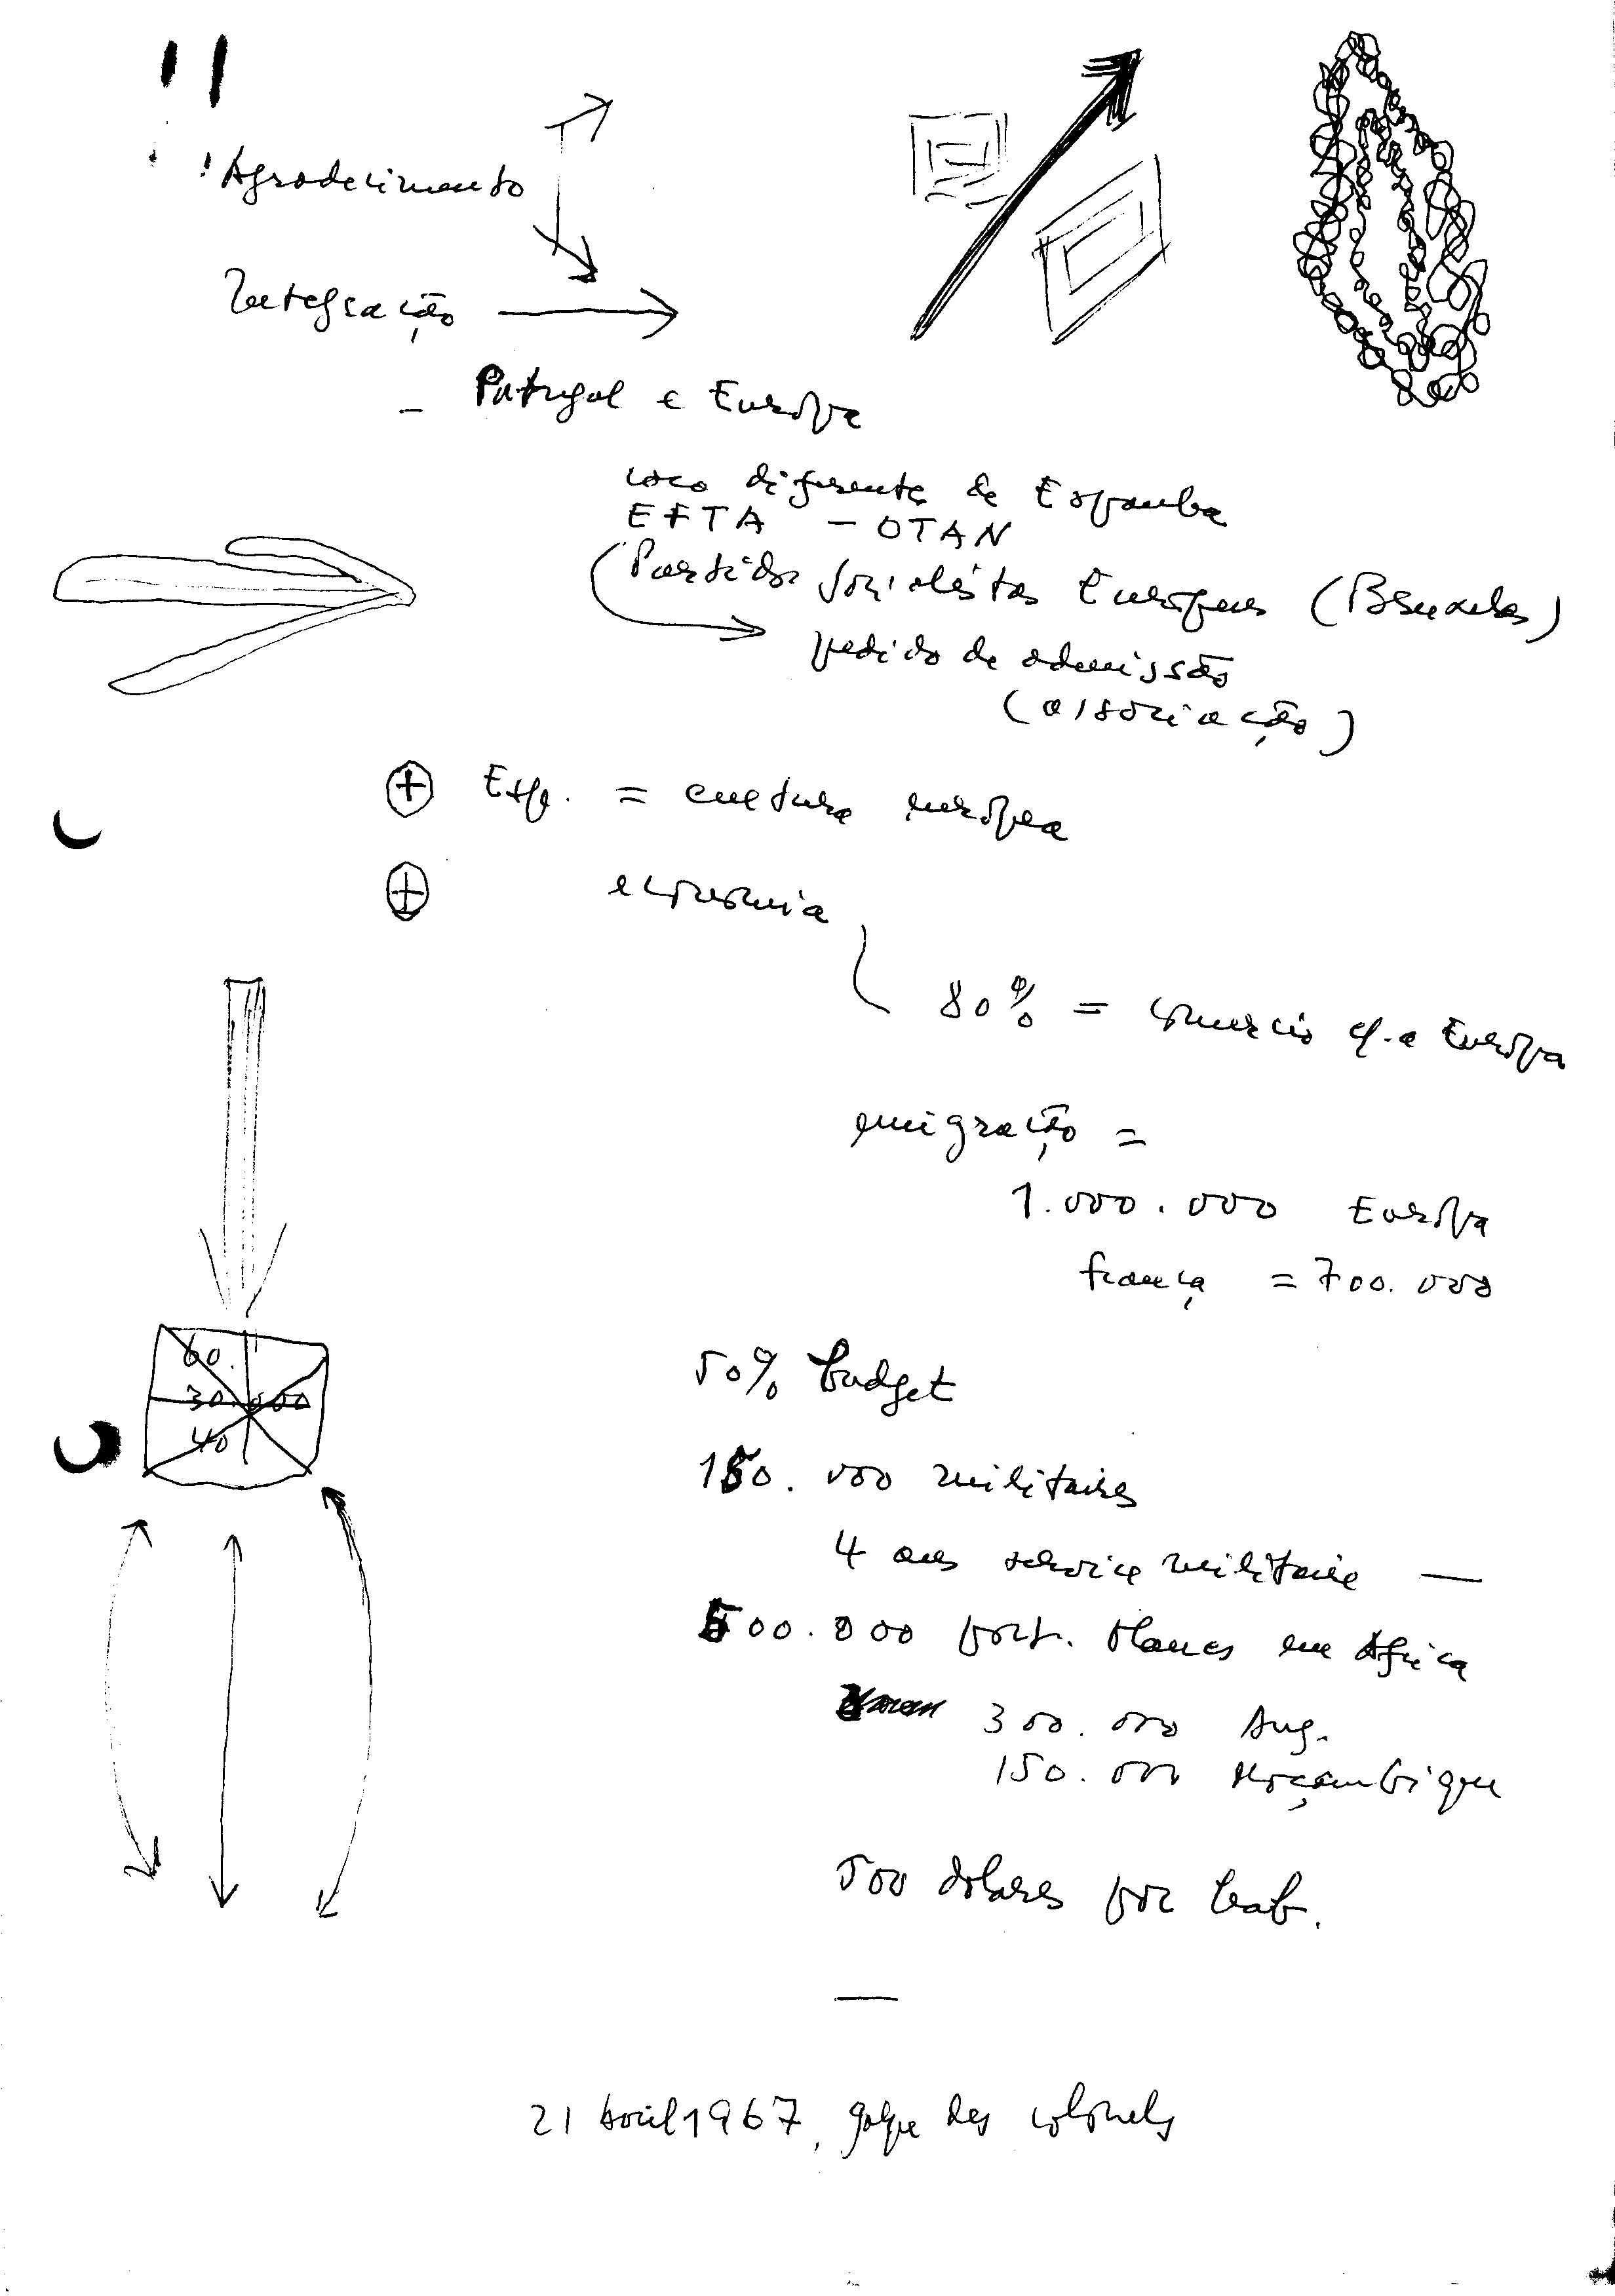 Agradecimento
Integração
- Portugal e Europa
caso diferente de Espanha
EFTA - OTAN
(Partidos Socialistas Europeus (Bruxelas)
pedido de admissão
(associação)
+ Esp. = cultura europea
+ economia
80% = comercio c/. a Europa
emigração =
1.000.000 Europa
frança = 700.000
60.
30.000
40
50% budget
150.000 militaires
4 ans service militaire —
500.000 port. blancs em Africa
300.000 Ang.
150.000 Moçambique
500 dolares por hab.
—
21 Avril 1967, golpe des colonels